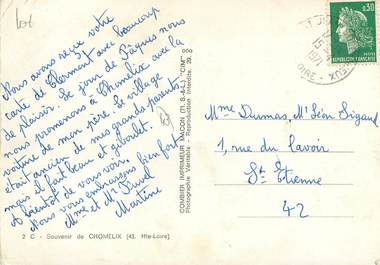 Nous avons reçu votre
carte de Clermont avec beaucoup
de plaisir. Le jour de Pâques nous
nous promenons à Chomelix avec la
voiture de mon père. Le village
était ancien de mes grands parents,
mais il fait beau et
A bientôt de vous voir.
Nous vous embrassons bien fort
Mme et Mr
Martine
2 C - Souvenir de CHOMELIX (43. Hte-Loire)
COMBIER IMPRIMEUR MACON (71. S.-&-L.) "CIM"
Photographie Véritable - Reproduction interdite.
0,30
REPUBLIQUE FRANÇAISE
Mme Dumas, Mr Léon Sigaud
1, rue du lavoir
St Etienne
42